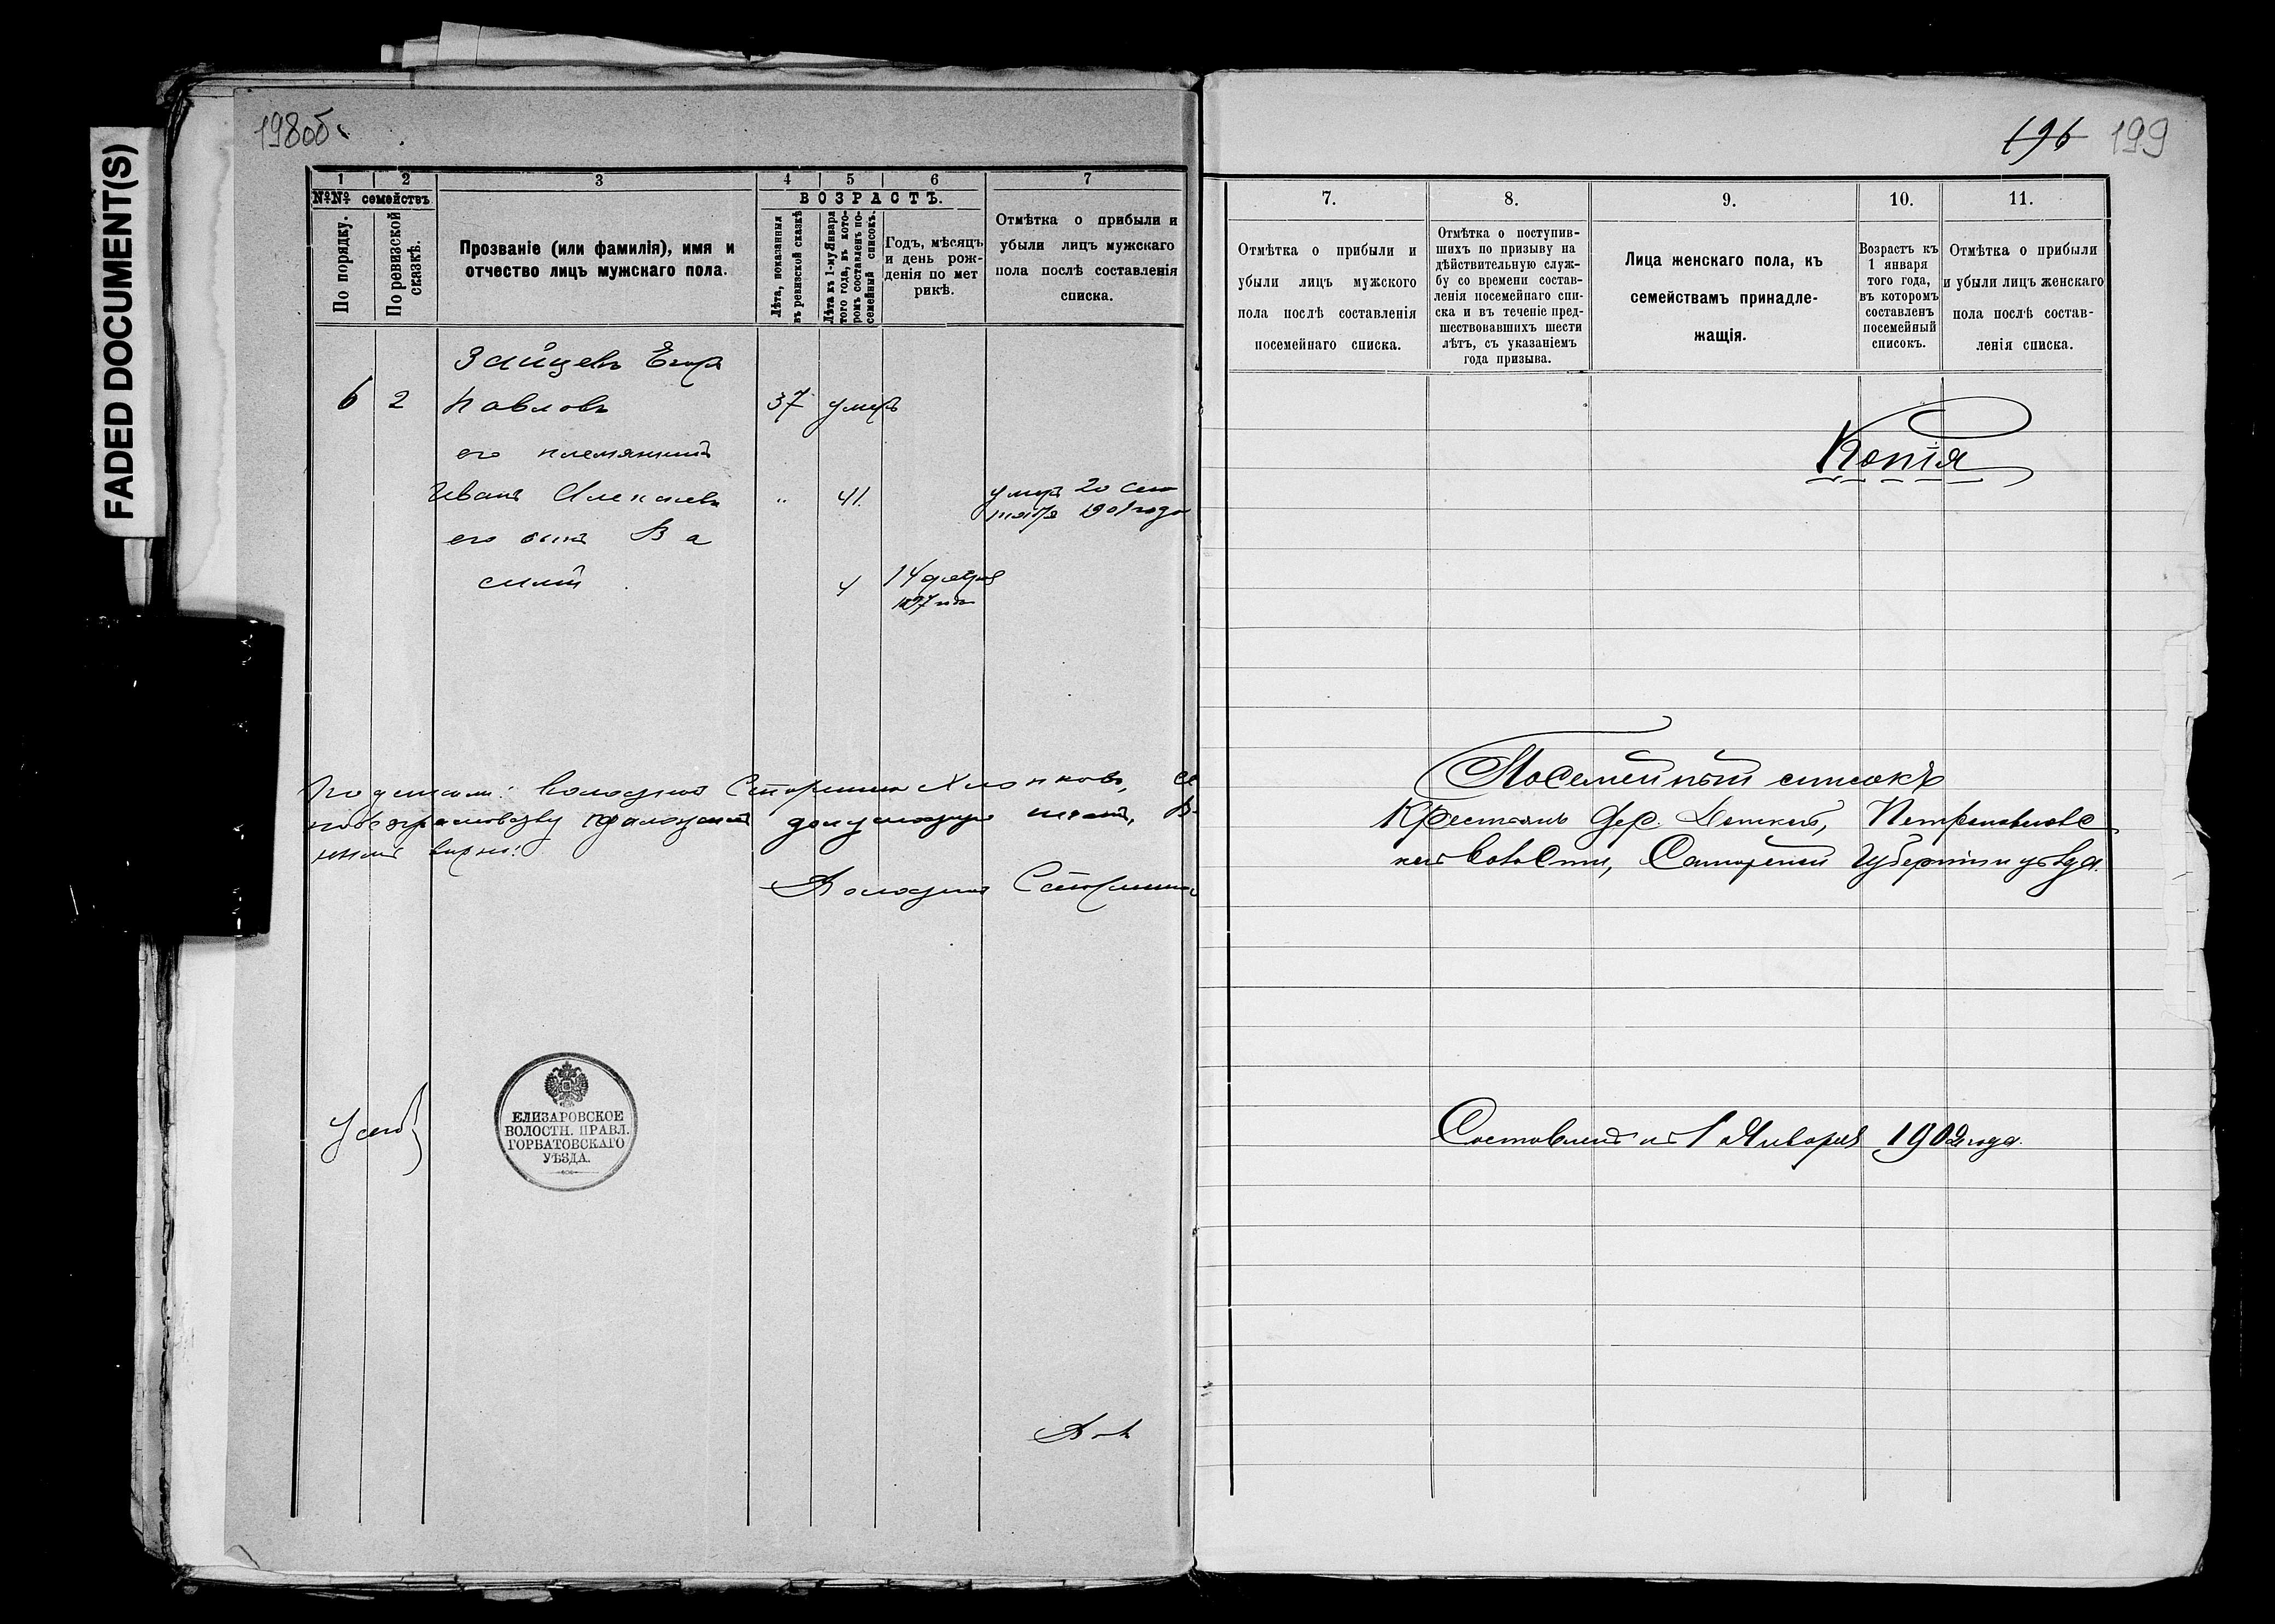 FADED DOCUMENT(S)
198об.
1 2 3 4 5 6 7
№№ семействъ
ВОЗРАСТЪ.
По порядку.
По ревизской сказкѣ.
Прозваніе (или фамилія), имя и
отчество лицъ мужскаго пола.
Лѣта, показанныя
въ ревизской сказкѣ
Лѣта къ 1-му Января
того года, въ кото-
ромъ составленъ по-
семейный списокъ.
Годъ, мѣсяцъ
и день рож-
денія по мет
рикѣ.
Отмѣтка о прибыли и
убыли лицъ мужскаго
пола послѣ составленія
списка.
Зайцевъ Егоръ
6 2 Павловъ 37 умеръ
его племянникъ
Иванъ Алексѣевъ " 41. умеръ 20 Сен
тября 1901 года
его сынъ Ва
силий 4 14
1897
Волостной Старшина
Волостной Старшина
ЕЛИЗАРОВСКОЕ
ВОЛОСТН. ПРАВЛ.
ГОРБАТОВСКАГО
УѢЗДА.
196 199
7. 8. 9. 10. 11.
Отмѣтка о прибыли и
убыли лицъ мужского
пола послѣ составленія
посемейнаго списка.
Отмѣтка о поступив-
шихъ по призыву на
дѣйствительную служ-
бу со времени состав-
ленія посемейнаго спи-
ска и въ теченіе пред-
шествовавшихъ шести
лѣтъ, съ указаніемъ
года призыва.
Лица женскаго пола, къ
семействамъ принадле-
жащія.
Возрастъ къ
1 января
того года,
въ которомъ
составленъ
посемейный
списокъ.
Отмѣтка о прибыли
и убыли лицъ женскаго
пола послѣ состав-
ленія списка.
Копія
Посемейный списокъ
Крестьянъ дер. Петропавловс
кой волости, Самарской Губерніи и уѣзда.
Составленъ на 1 Января 1902 года.